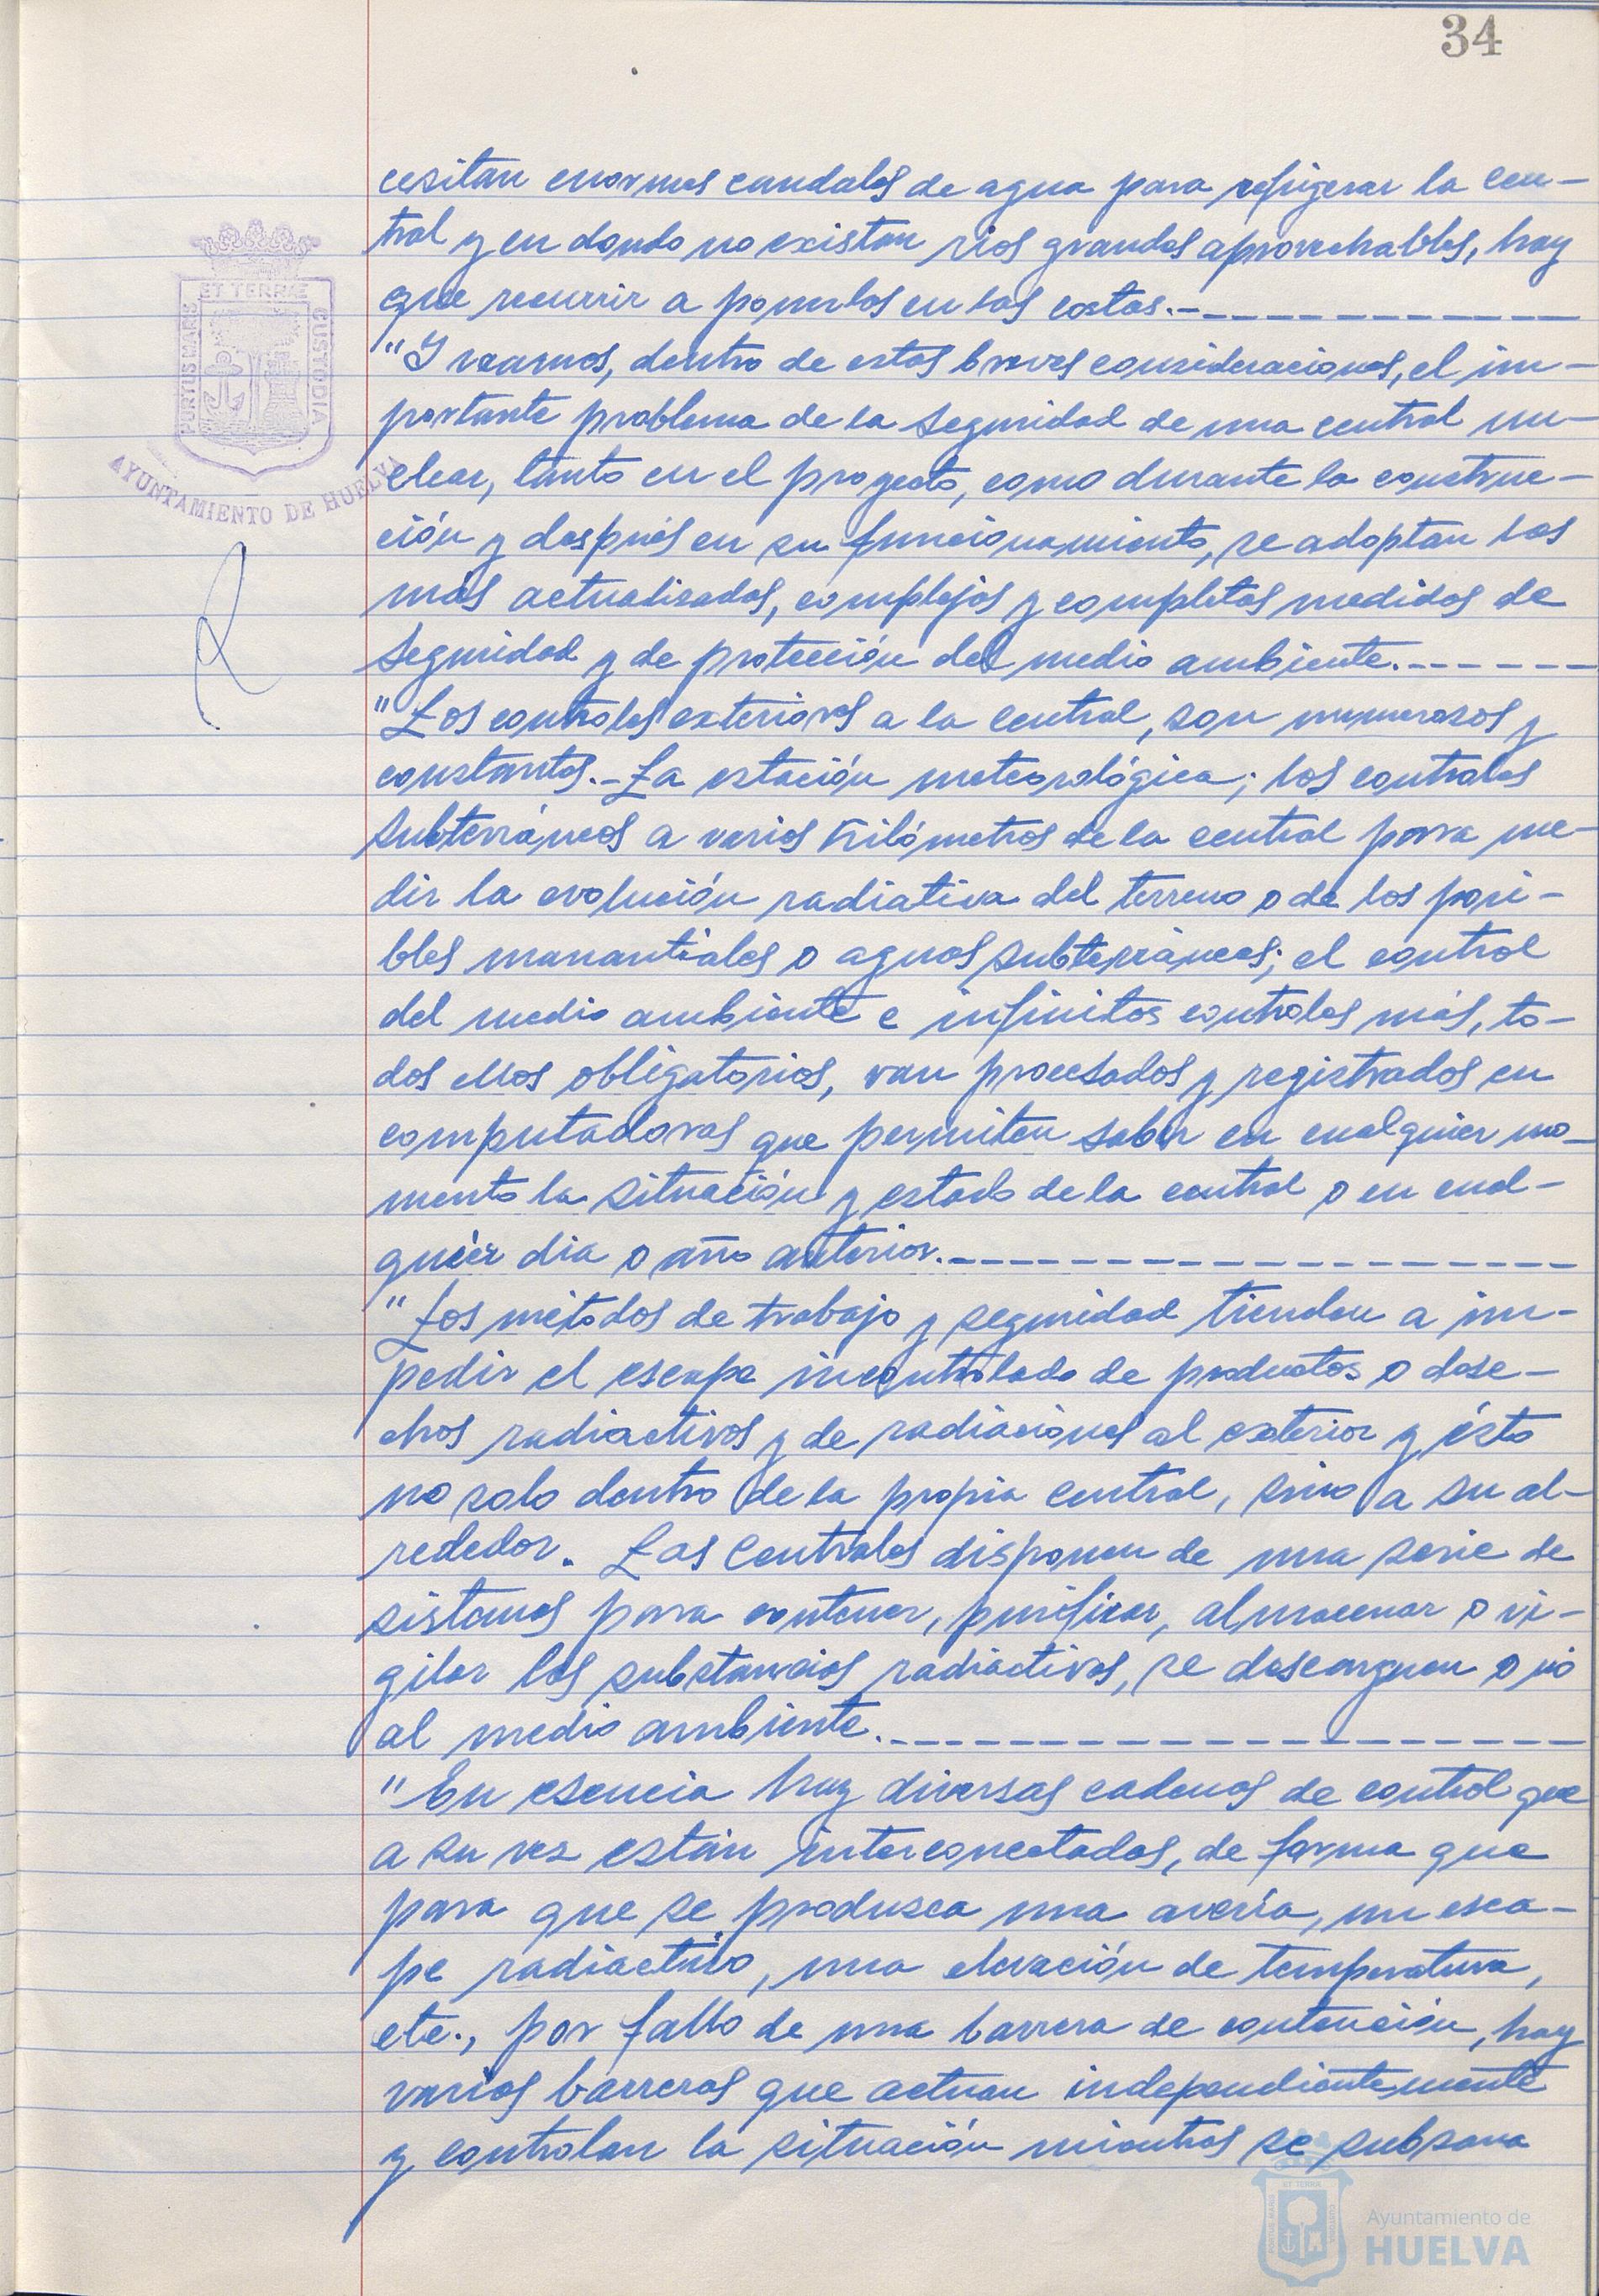 34
cesitan enormes caudales de agua para refrigerar la cen-
tral y en donde no existan rios grandes aprovechables, hay
que recurrir a ponerlos en las costas.-
"Y veamos, dentro de estas breves consideraciones, el im-
portante problema de la seguridad de una central nu-
clear, tanto en el proyecto, como durante la construc-
ción y después en su funcionamiento, se adoptan las
más actualizadas, complejas y completas medidas de
seguridad y de protección del medio ambiente.
"Los controles exteriores a la central, son numerosos y
constantes.- La estación meteorológica; los controles
subterráneos a varios kilómetros de la central para me-
dir la evolución radiativa del terreno o de los posi-
bles manantiales o aguas subterráneas; el control
del medio ambiente e infinitos controles más, to-
dos ellos obligatorios, van procesados y registrados en
computadoras que permiten saber en cualquier mo-
mento la situación y estado de la central o en cual-
quier dia o año anterior.
"Los métodos de trabajo y seguridad tienden a im-
pedir el escape incontrolado de productos o dese-
chos radiactivos y de radiaciones al exterior y ésto
no solo dentro de la propia central, sino a su al-
rededor. Las Centrales disponen de una serie de
sistemas para contener, purificar, almacenar o vi-
gilar las substancias radiactivas, se descarguen o no
al medio ambiente.
"En esencia hay diversas cadenas de control que
a su vez están interconectadas, de forma que
para que se produzca una avería, un esca-
pe radiactivo, una elevación de temperatura,
etc., por fallo de una barrera de contención, hay
varias barreras que actuan independientemente
y controlan la situación mientras se subsana
PORTUS MARIS
ET TERRÆ
CUSTODIA
AYUNTAMIENTO DE HUELVA
Ayuntamiento de
HUELVA